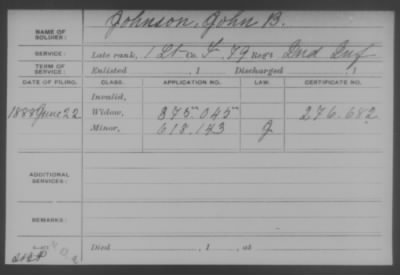 Johnson, John B.
NAME OF SOLDIER:
SERVICE: Late rank, 1 Lt Co. F, 79 Reg't Ind Inf
TERM OF SERVICE: Enlisted , 1 Discharged , 1
DATE OF FILING. CLASS. APPLICATION NO. LAW. CERTIFICATE NO.
Invalid,
1888 June 22 Widow, 375.045 276.682
Minor, 618.143 J
ADDITIONAL SERVICES:
REMARKS:
Died , 1 , at